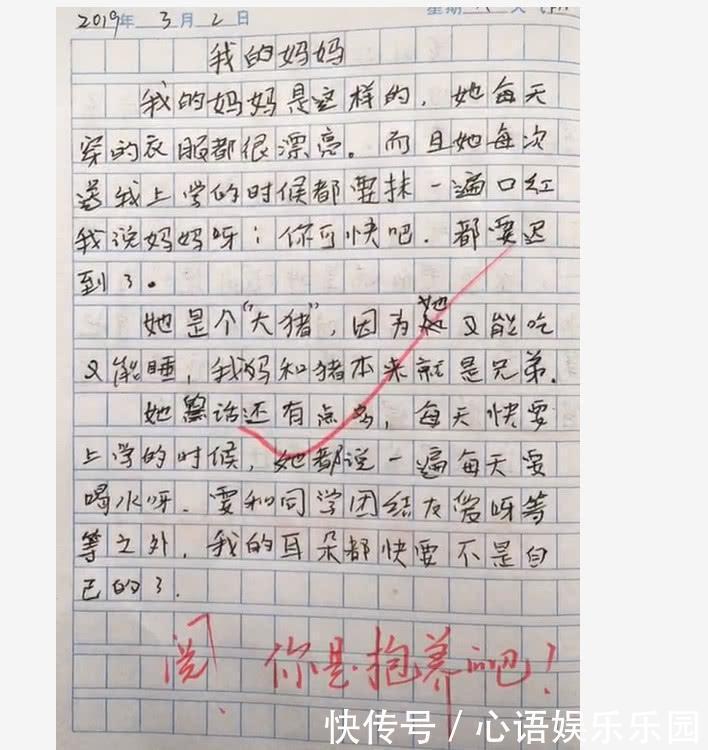 2019年3月2日
星期
我的妈妈
我的妈妈是这样的，她每天
穿的衣服都很漂亮。而且她每次
送我上学的时候都要抹一遍口红
我说妈妈呀；你可快吧．都要迟
到了。
她是个“大猪”，因为她又能吃
又能睡，我妈和猪本来就是兄弟．
她话还有点多，每天快要
上学的时候，她都说一遍每天要
喝水呀．要和同学团结友爱呀等
等之外，我的耳朵都快要不是自
己的了．
阅 你是抱养的吧！
快传号 / 心语娱乐乐园